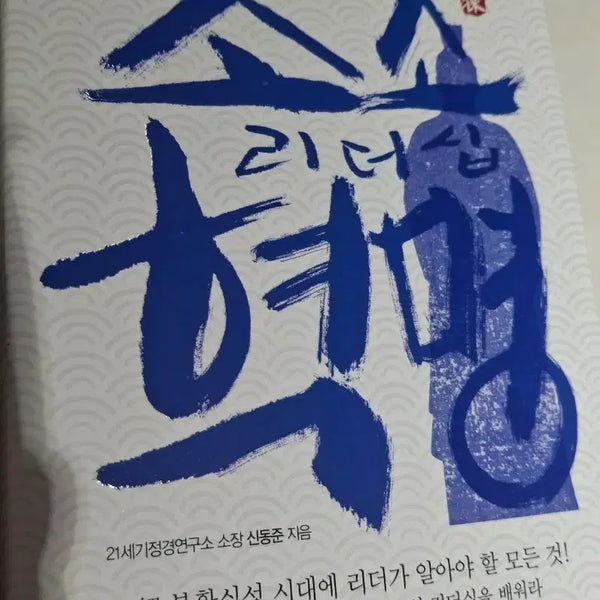 리더십
혁명
21세기정경연구소 소장 신동준 지음
불확실성 시대에 리더가 알아야 할 모든 것!
리더십을 배워라